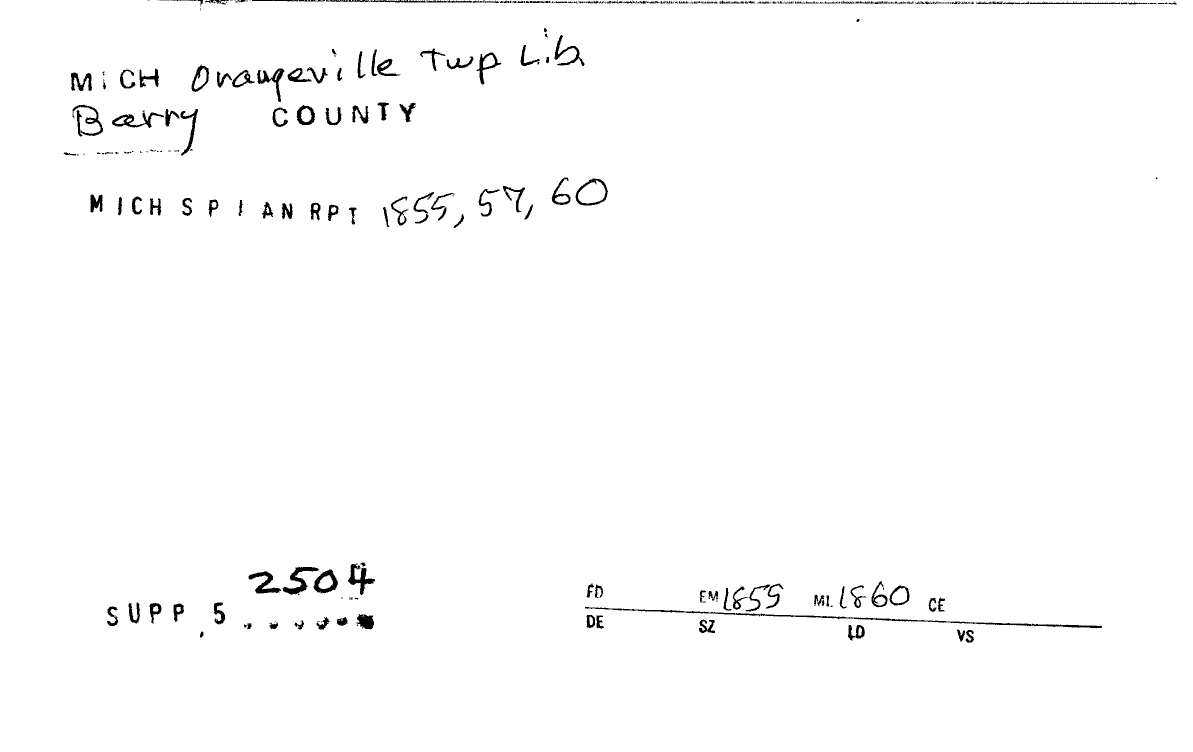 MICH Orangeville Twp Lib.
Barry COUNTY
MICH S P I AN RPT 1855, 57, 60
2504
SUPP. 5
FD EM 1855 ML 1860 CE
DE SZ LD VS